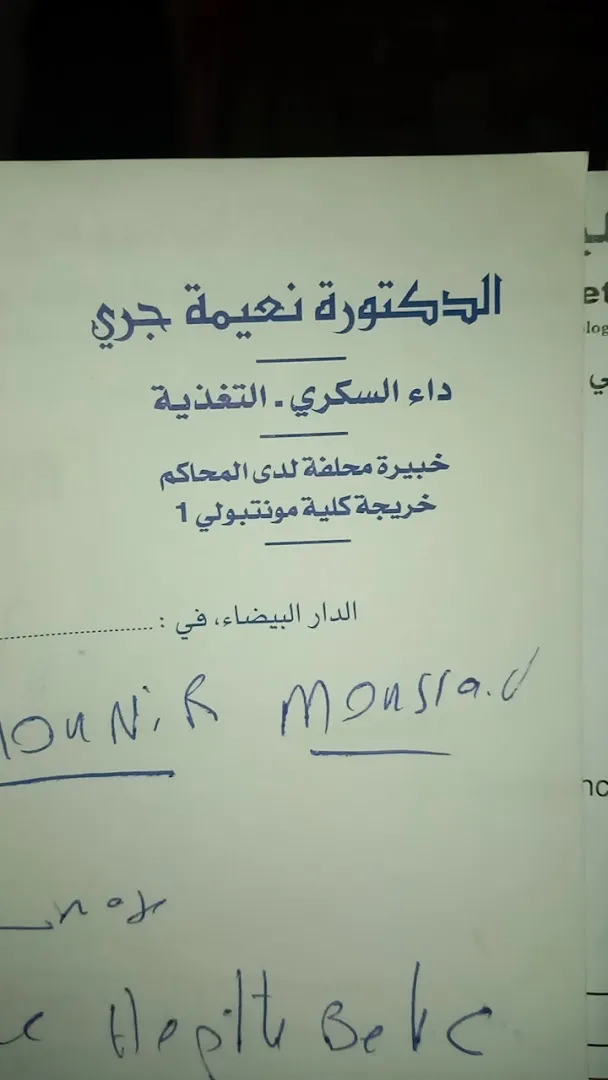 الدكتورة نعيمة جري
داء السكري - التغذية
خبيرة محلفة لدى المحاكم
خريجة كلية مونتبولي 1
الدار البيضاء، في :
MOUNIR
Hepitte B et C